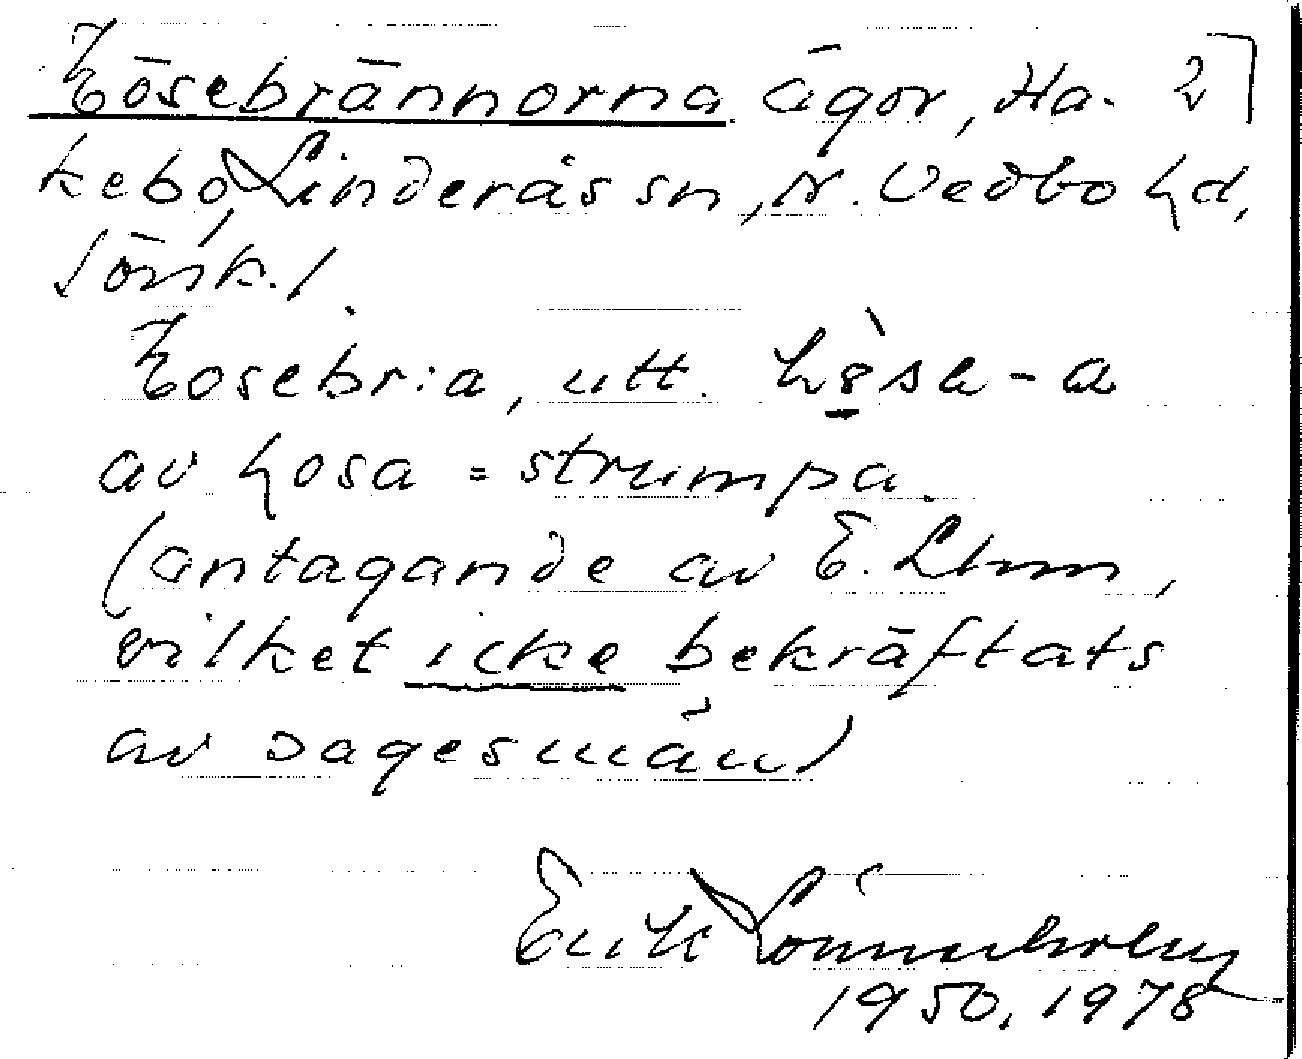 Hösebrännorna ägor, Ha- 2
kebo, Linderås sn, N. Vedbo hd,
Jönk. l.
Hosebr:a, utt. hòsa-a
av hosa = strumpa.
(antagande av E. Lhm,
vilket icke bekräftats
av sagesmän)
Erik Lönnerholm
1950, 1978